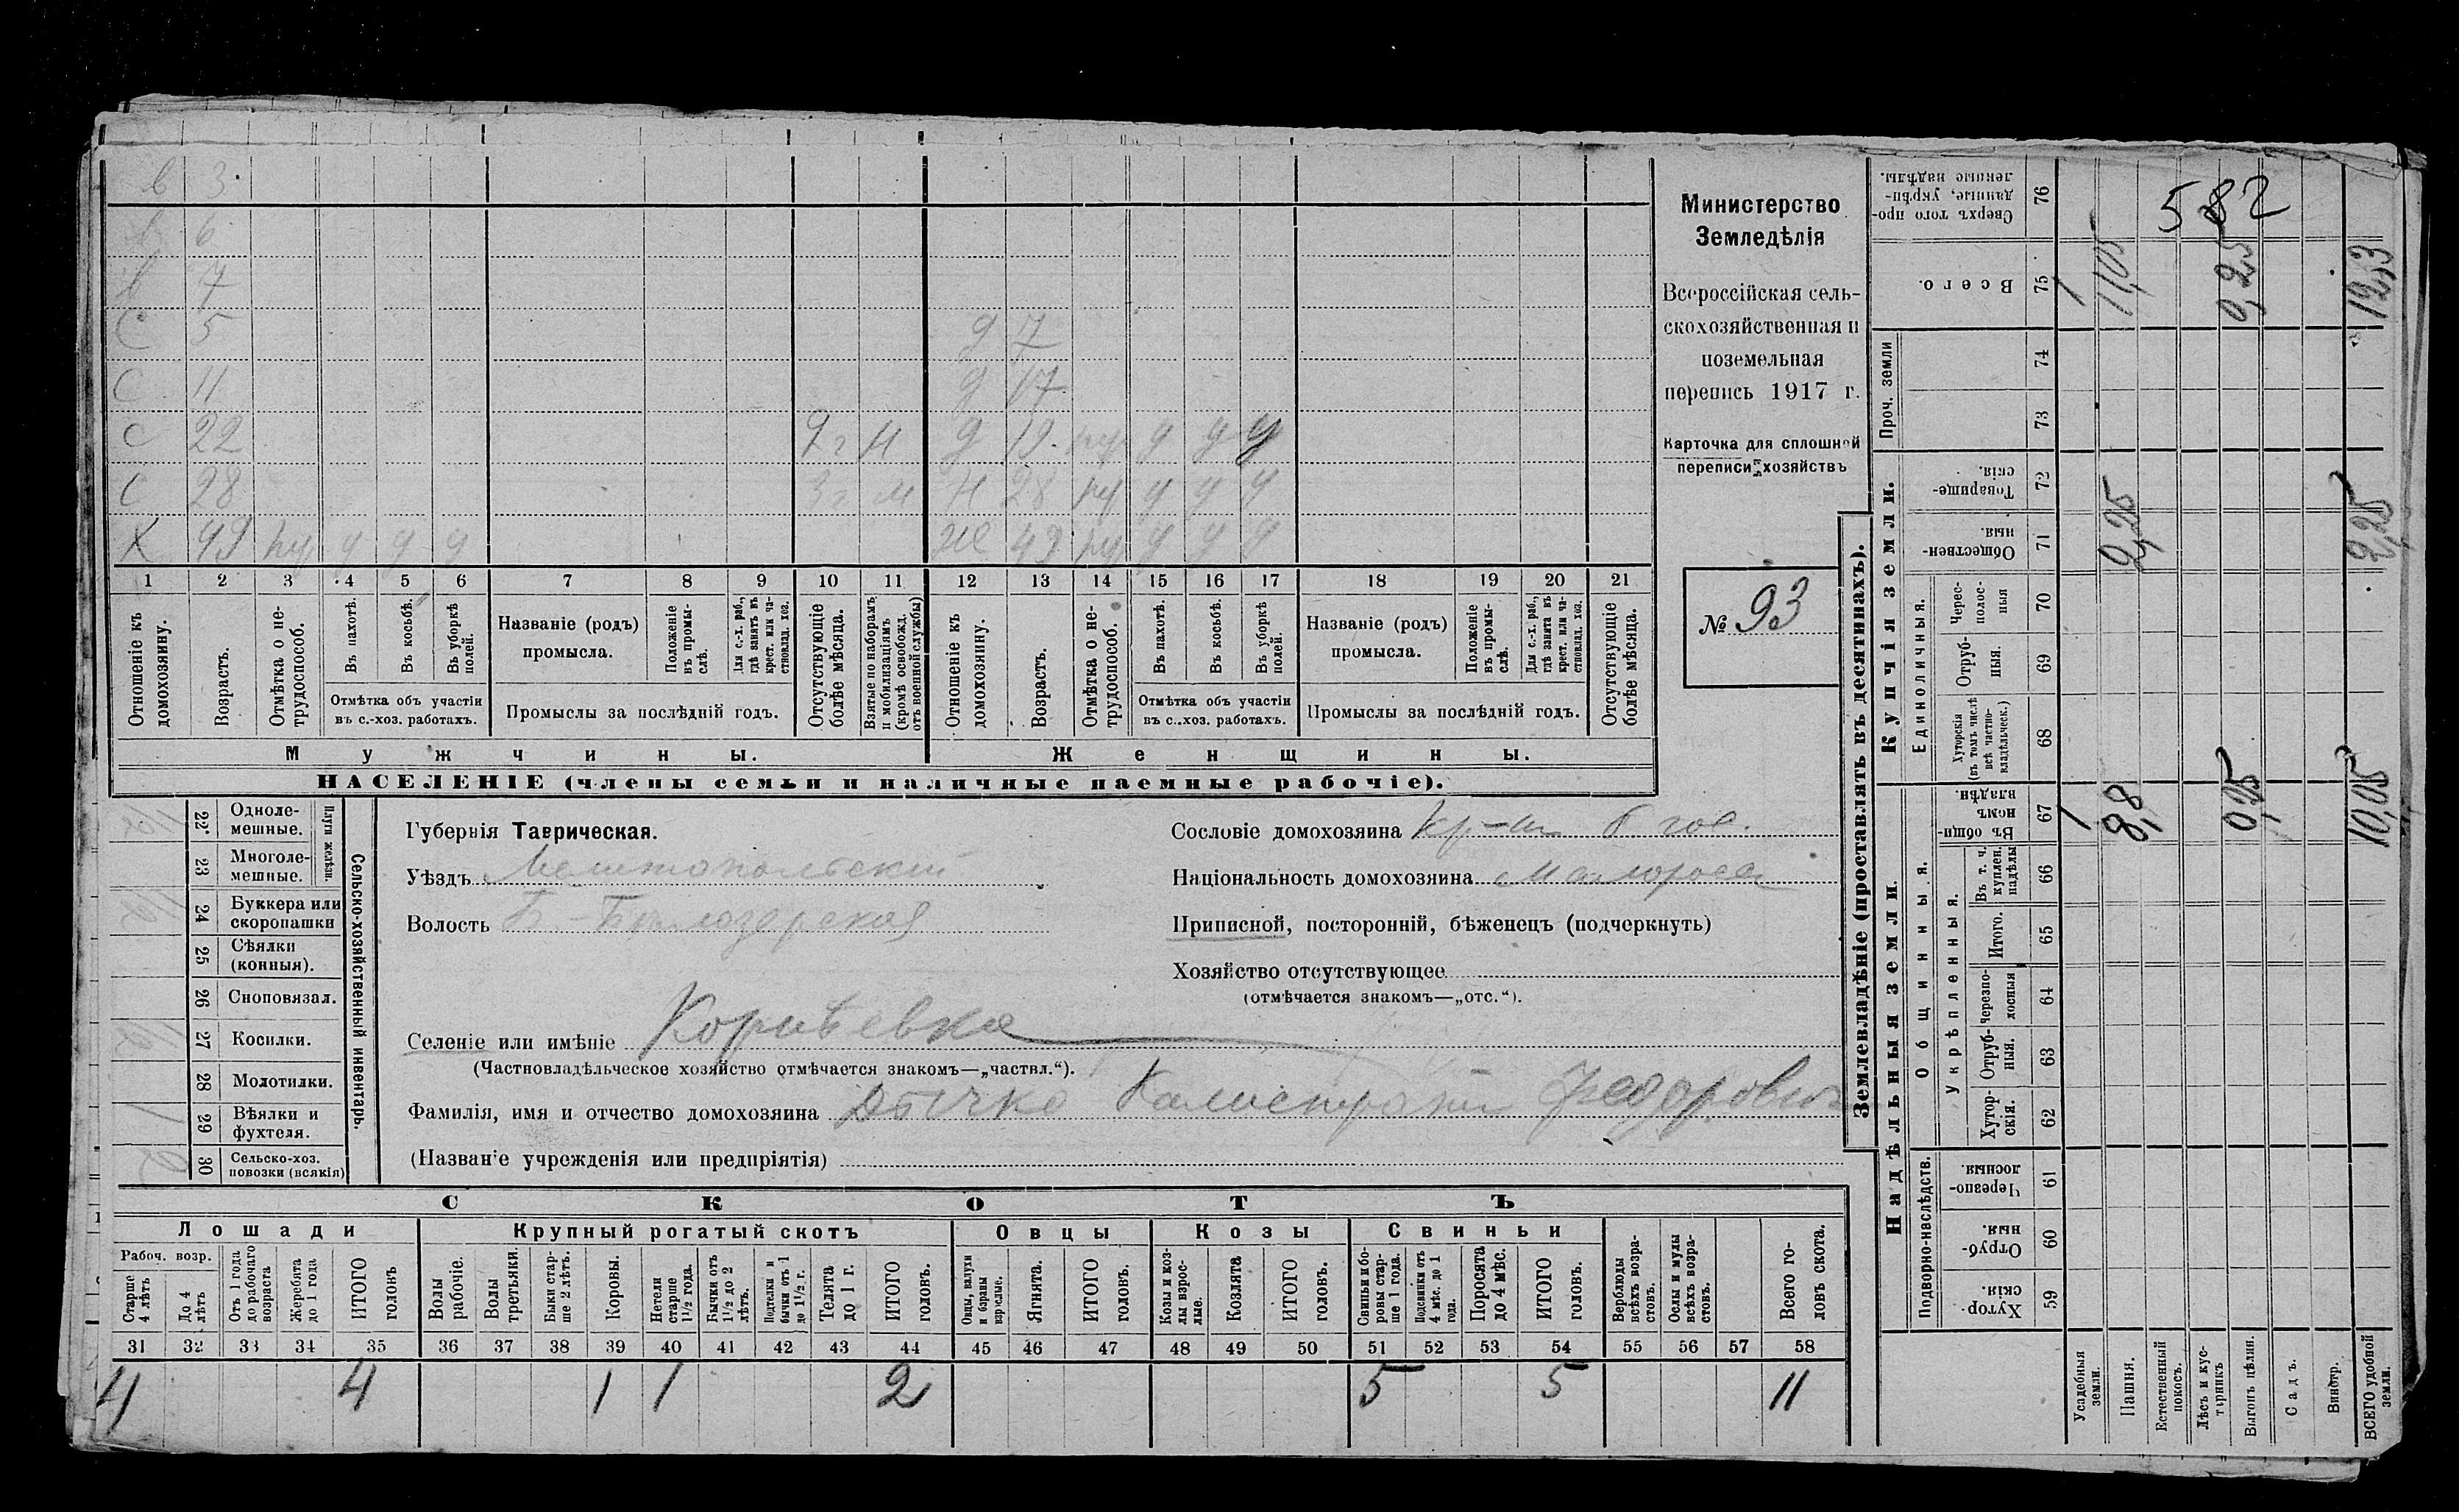 в 3.
в 6
в 7
С 5 д 7
С 11 д 17
С 22 2г М д 19 ну у у у
С 28 3г М Н 28 ну у у у
Х 49 ну у у у Ж 49 ну у у у
1 2 3 4 5 6 7 8 9 10 11 12 13 14 15 16 17 18 19 20 21
Отношеніе къ домохозяину.
Возрастъ.
Отмѣтка о не-трудоспособ.
Въ пахотѣ.
Въ косьбѣ.
Въ уборкѣ полей.
Отмѣтка объ участіи
въ с.-хоз. работахъ.
Названіе (родъ)
промысла.
Положеніе въ промы-слѣ.
Для с.-х. раб., гдѣ занятъ въ крест. или ча-стновлад. хоз.
Промыслы за послѣдній годъ.
Отсутствующіе болѣе мѣсяца.
Взятые по наборамъ и мобилизаціямъ (кромѣ освобожд. отъ военной службы)
Отношеніе къ домохозяину.
Возрастъ.
Отмѣтка о не-трудоспособ.
Въ пахотѣ.
Въ косьбѣ.
Въ уборкѣ полей.
Отмѣтка объ участіи
въ с.-хоз. работахъ.
Названіе (родъ)
промысла.
Положеніе въ промы-слѣ.
Для с.-х. раб., гдѣ занята въ крест. или ча-стновлад. хоз.
Промыслы за послѣдній годъ.
Отсутствующіе болѣе мѣсяца.
Мужчины. Женщины.
НАСЕЛЕНІЕ (члены семьи и наличные наемные рабочіе).
Министерство
Земледѣлія
Всероссійская сель-
скохозяйственная и
поземельная
перепись 1917 г.
Карточка для сплошной
переписи хозяйствъ
№ 93
Сельско-хозяйственный инвентарь.
Плуги желѣзн.
22 Одноле-
мешные.
23 Многоле-
мешные.
24 Буккера или
скоропашки
25 Сѣялки
(конныя).
26 Сноповязал.
27 Косилки.
28 Молотилки.
29 Вѣялки и
фухтеля.
30 Сельско-хоз.
повозки (всякія)
Губернія Таврическая.
Уѣздъ Мелитопольскій
Волость Б.-Бѣлозерская
Сословіе домохозяина кр-ин б гос.
Національность домохозяина малоросс
Приписной, посторонній, бѣженецъ (подчеркнуть)
Хозяйство отсутствующее
(отмѣчается знакомъ—„отс.“).
Селеніе или имѣніе
(Частновладѣльческое хозяйство отмѣчается знакомъ—„частвл.“).
Фамилія, имя и отчество домохозяина Дычко Калистратій Федорович
(Названіе учрежденія или предпріятія)
СКОТЪ
Лошади Крупный рогатый скотъ Овцы Козы Свиньи
Рабоч. возр.
Старше 4 лѣтъ
До 4 лѣтъ
Отъ 1 года до рабочаго возраста
Жеребята до 1 года
ИТОГО головъ
Волы рабочіе.
Волы третьяки.
Быки стар-ше 2 лѣтъ.
Коровы.
Нетели старше 1½ года.
Бычки отъ 1½ до 2 лѣтъ.
Подтелки и бычки отъ 1 до 1½ г.
Телята до 1 г.
ИТОГО головъ.
Овцы, валухи и бараны взрослые.
Ягнята.
ИТОГО головъ.
Козы и коз-лы взрос-лые.
Козлята
ИТОГО головъ.
Свиньи и бо-ровы стар-ше 1 года.
Подсвинки отъ 4 мѣс. до 1 года.
Поросята до 4 мѣс.
ИТОГО головъ.
Верблюды всѣхъ возра-стовъ.
Ослы и мулы всѣхъ возра-стовъ.
Всего го-ловъ скота.
31 32 33 34 35 36 37 38 39 40 41 42 43 44 45 46 47 48 49 50 51 52 53 54 55 56 57 58
4 4 1 1 2 5 5 11
Землевладѣніе (проставлять въ десятинахъ).
Надѣльныя земли. Купчія земли. Проч. земли
Подворно-наслѣдств. Общинныя. Укрѣпленныя. Единоличныя.
59 Хутор-скія.
60 Отруб-ныя.
61 Черезпо-лосныя.
62 Хутор-скія.
63 Отруб-ныя.
64 Черезпо-лосныя
65 Итого.
66 Въ т. ч. куплен. надѣлы
67 Въ общи-номъ владѣн.
68 Хуторскія (въ томъ числѣ всѣ частно-владѣльческ.)
69 Отруб-ныя.
70 Черес-полос-ныя
71 Обществен-ныя.
72 Товарище-скія.
73
74
75 Всего.
76 Сверхъ того про-данные, укрѣп-ленные надѣлы.
582
Усадебныя земли. 1 1
Пашня. 8,8 2,25 11,05
Естественный покосъ.
Лѣсъ и кус-тарникъ
Выгонъ цѣлин. 0,25 0,25
Садъ.
Виногр.
ВСЕГО удобной земли. 10,05 2,25 12,3